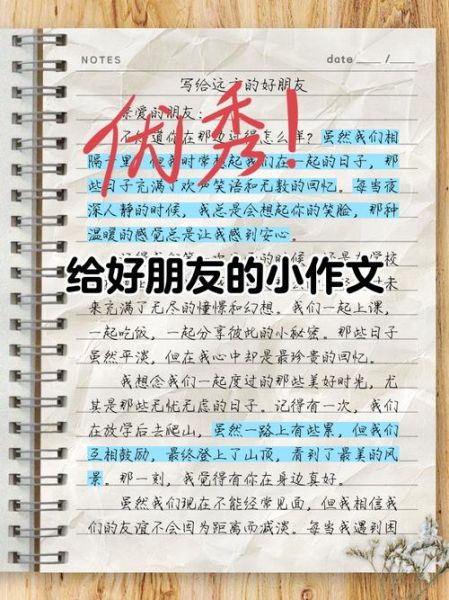 NOTES
date ____ /____
写给远方的好朋友
亲爱的朋友：
优秀！
不知道你在那边过得怎么样？虽然我们相
隔千里，但我时常想起我们在一起的日子，那
些日子充满了欢声笑语和无数的回忆。每当夜
深人静的时候，我总是会想起你的笑脸，那种
温暖的感觉总是让我感到安心。
给好朋友的小作文
来充满了无尽的憧憬和幻想。我们一起上课，
一起吃饭，一起分享彼此的小秘密。那些日子
虽然平淡，但在我心中却是最珍贵的回忆。
我想念我们一起度过的那些美好时光，尤
其是那些无忧无虑的日子。记得有一次，我们
在放学后去爬山，虽然一路上有些累，但我们
互相鼓励，最终登上了山顶，看到了最美的风
景。那一刻，我觉得有你在身边真好。
虽然我们现在不能经常见面，但我相信我
们的友谊不会因为距离而减淡。每当我遇到困